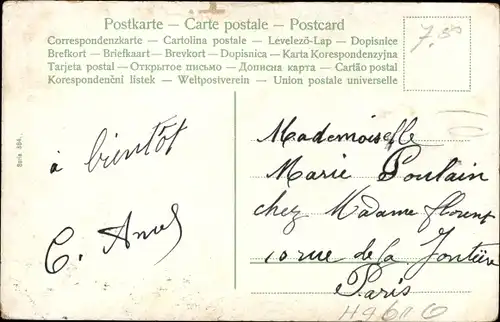 Postkarte – Carte postale – Postcard
Correspondenzkarte – Cartolina postale – Levelező-Lap – Dopisnice
Brefkort – Briefkaart – Brevkort – Dopisnica – Karta Korespondenzyjna
Tarjeta postal – Открытое письмо – Дописна карта – Cartão postal
Korespondenční listek – Weltpostverein – Union postale universelle
7.50
Serie 884.
à bientôt
C.
Mademoiselle
Marie Poulain
chez Madame florent
10 rue de la
Paris